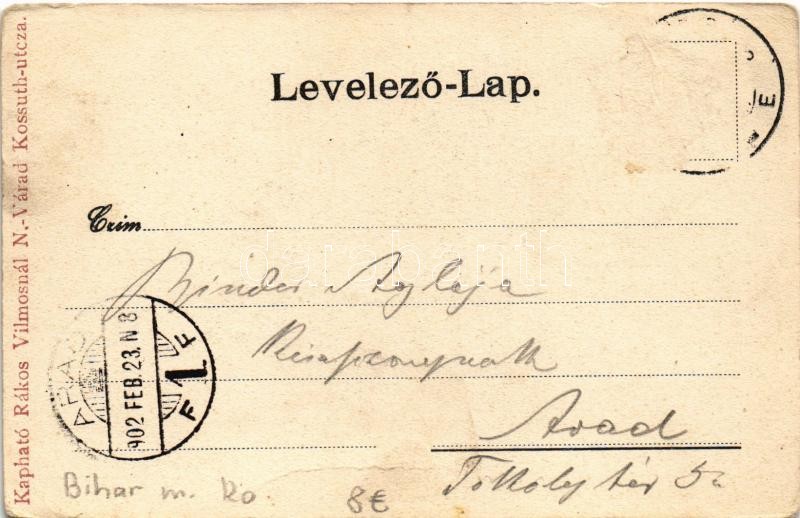 Levelező-Lap.
Czim
Binder Aglája
Arad
Tököly tér 5a
ARAD
902 FEB. 23. N 8
F 1 F
E
Bihar m. Ro
8€
Kapható Rákos Vilmosnál N.-Várad Kossuth-utcza.
darabanth